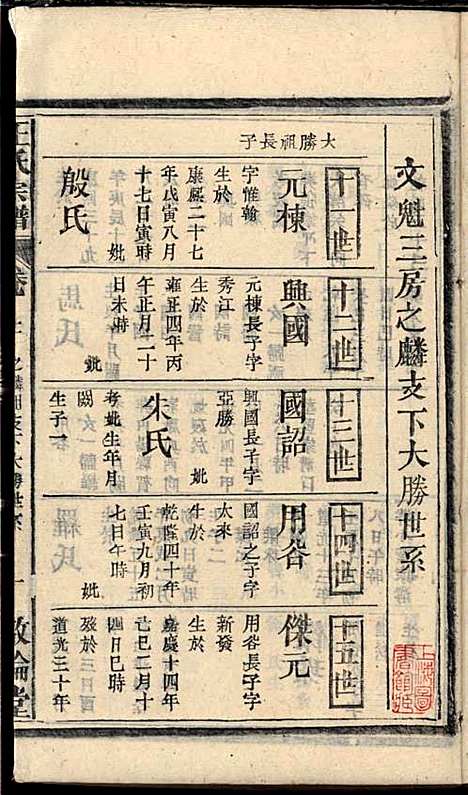 文魁三房之麟支下大勝世系
大勝祖長子
十一世
元棟
字惟翰
生於
康熙二十七
年戊寅八月
十七日寅時
妣
殷氏
十二世
興國
元棟長子字
秀江
生於
雍正四年丙
午正月二十
日未時
妣
十三世
國詔
興國長子字
亞勝
生於
妣
朱氏
考妣生年月
闕
生子一
十四世
用咎
國詔之子字
太來
生於
乾隆四十年
壬寅九月初
七日午時
妣
十五世
傑元
用咎長子字
新發
生於
嘉慶十四年
己巳二月十
四日巳時
歿於三日酉
道光三十年
王氏宗譜
卷十
之麟支下大勝世系
一
敦倫堂
上海圖書館藏